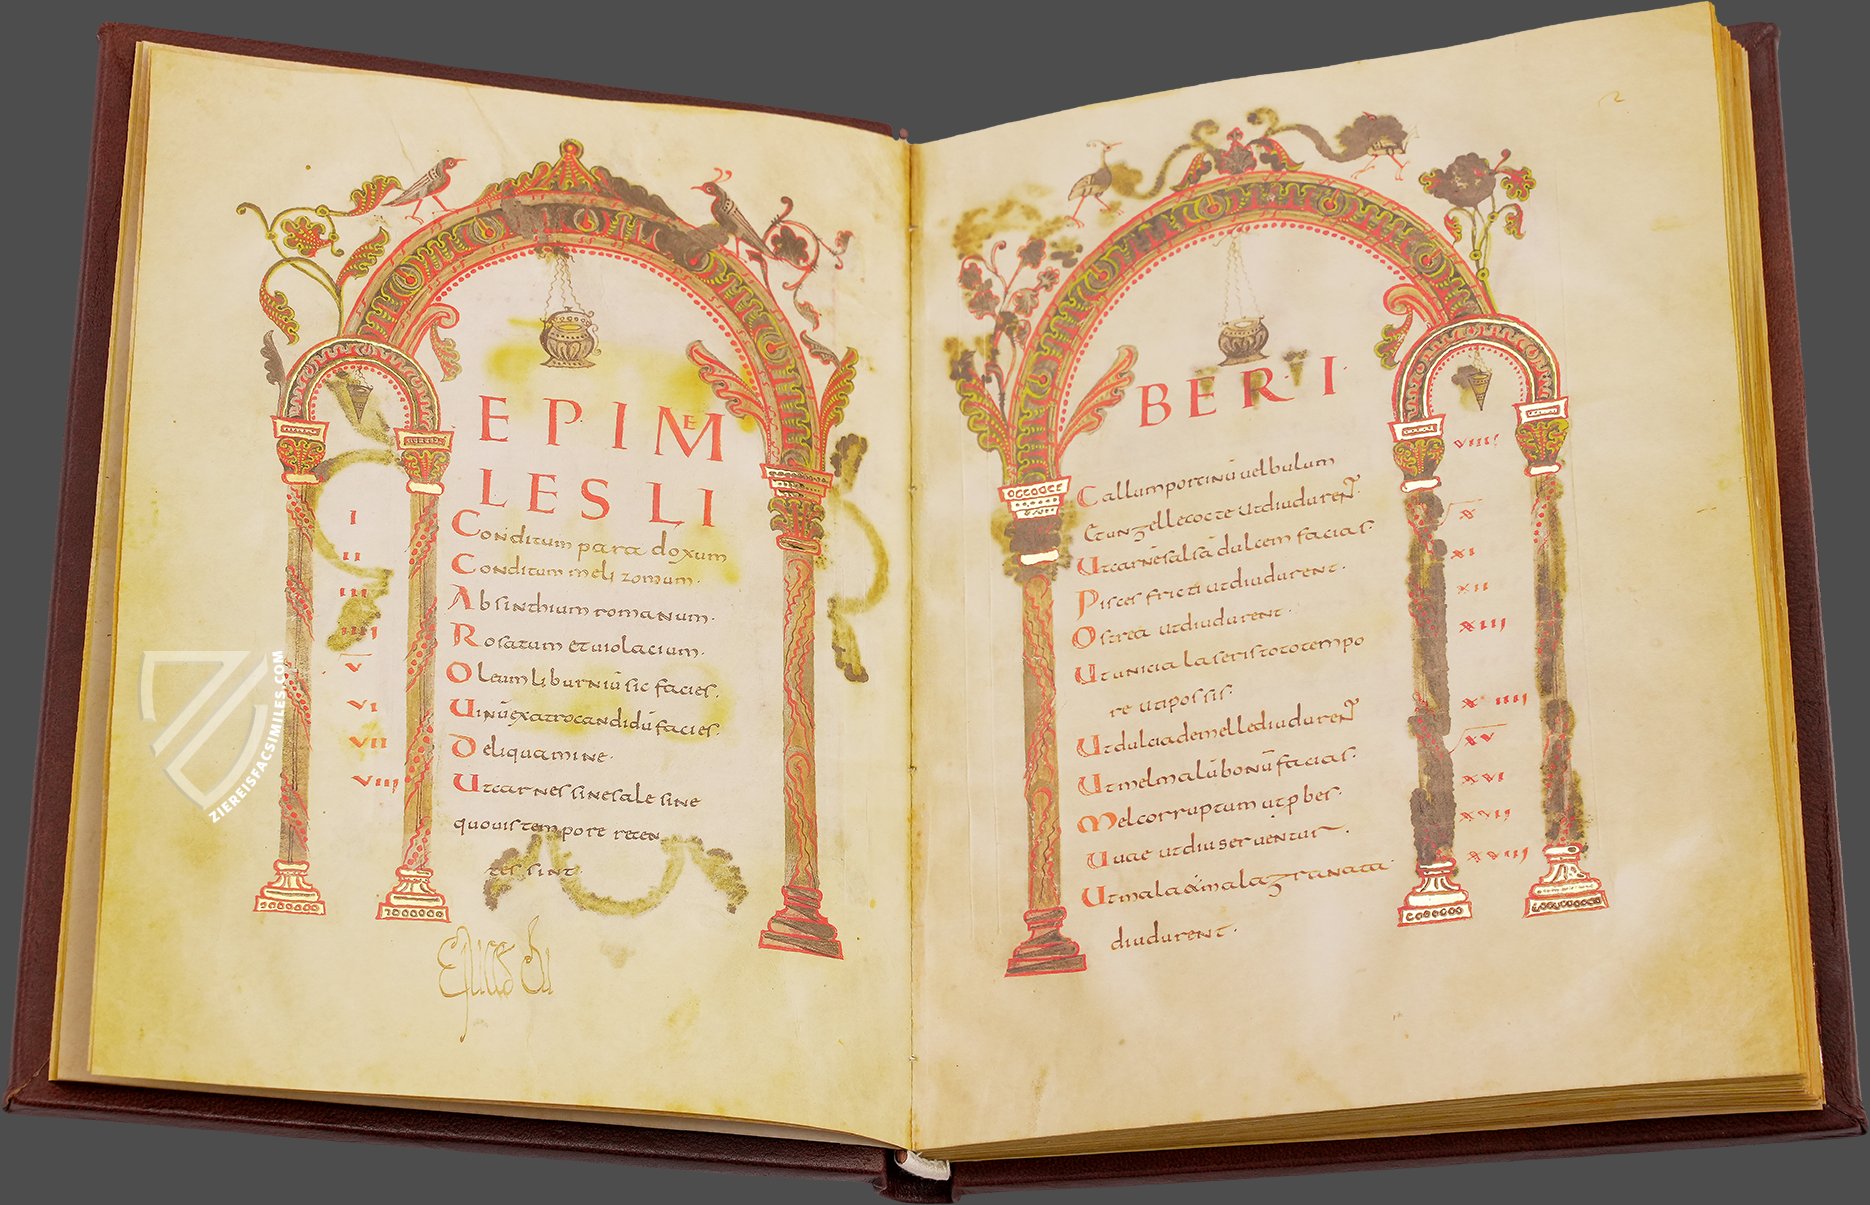 EPIME
LES LI
I Conditum paradoxum
II Conditum melizomum·
III Absinthium romanum·
IIII Rosatum et uiolacium·
V Oleum liburniū sic facies·
VI Uinū ex atro candidū facies·
VII De liquamine·
VIII Ut carnes sine sale sine
quouis tempore recen
tes sint
BER·I·
VIIII Callum porcinū uel bulum
Et ungelle cocte ut diu duren̄
X Ut carnē salsā dulcem facias·
XI Pisces fricti ut diu durent·
XII Ostrea ut diu durent·
XIII Ut unicia laseris toto tempo
re utipossis:
XIIII Ut dulcia de melle diu duren̄
XV Ut mel malū bonū facias·
XVI Mel corruptum ut p̱bes·
XVII Uuae ut diu seruentur·
XVIII Ut mala & mala granata·
diu durent·
ZIEREISFACSIMILES.COM